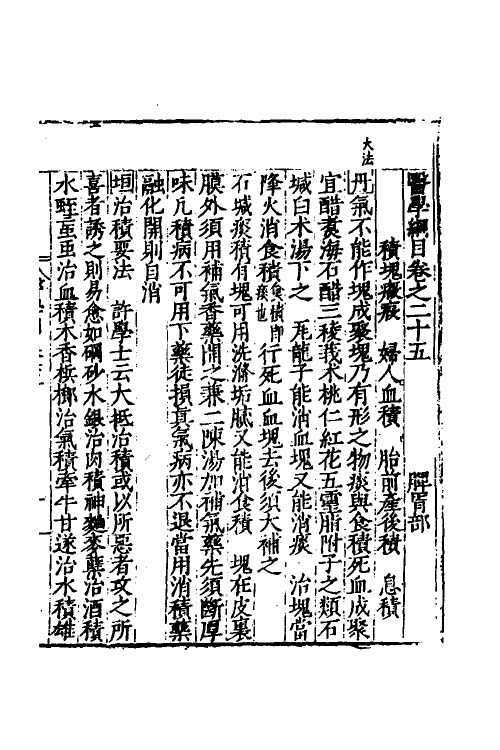 醫學綱目卷之二十五　脾胃部
積塊癥瘕　婦人血積　胎前產後積　息積
大法
丹氣不能作塊成聚塊乃有形之物痰與食積死血成聚
宜醋煮海石醋三稜莪朮桃仁紅花五靈脂附子之類石
堿白朮湯下之　瓦龍子能消血塊又能消痰　治塊當
降火消食積食積即痰也行死血血塊去後須大補之
石堿痰積有塊可用洗滌垢膩又能消食積　塊在皮裏
膜外須用補氣香藥開之兼二陳湯加補氣藥先須斷厚
味凡積病不可用下藥徒損真氣病亦不退當用消積藥
融化開則自消
垣治積要法　許學士云大抵治積或以所惡者攻之所
喜者誘之則易愈如硇砂水銀治肉積神麯麥蘗治酒積
水蛭䖟虫治血積木香檳榔治氣積牽牛甘遂治水積雄